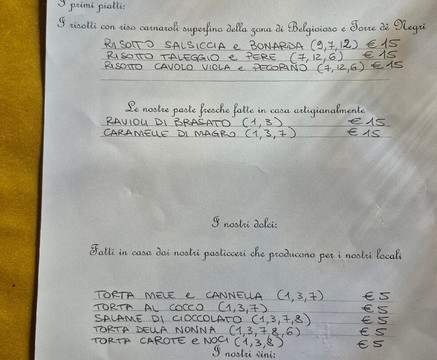 I primi piatti:
I risotti con riso carnaroli superfino della zona di Belgioioso e Torre dè Negri
RISOTTO SALSICCIA e BONARDA (9,7,12) € 15
RISOTTO TALEGGIO e PERE (7,12,6) € 15
RISOTTO CAVOLO VIOLA e PECORINO (7,12,6) € 15
Le nostre paste fresche fatte in casa artigianalmente
RAVIOLI DI BRASATO (1,3) € 15
CARAMELLE DI MAGRO (1,3,7) € 15
I nostri dolci:
Fatti in casa dai nostri pasticceri che producono per i nostri locali
TORTA MELE e CANNELLA (1,3,7) € 5
TORTA AL COCCO (1,3,7) € 5
SALAME DI CIOCCOLATO (1,3,7,8) € 5
TORTA DELLA NONNA (1,3,7,8,6) € 5
TORTA CAROTE e NOCI (1,3,8) € 5
I nostri vini: